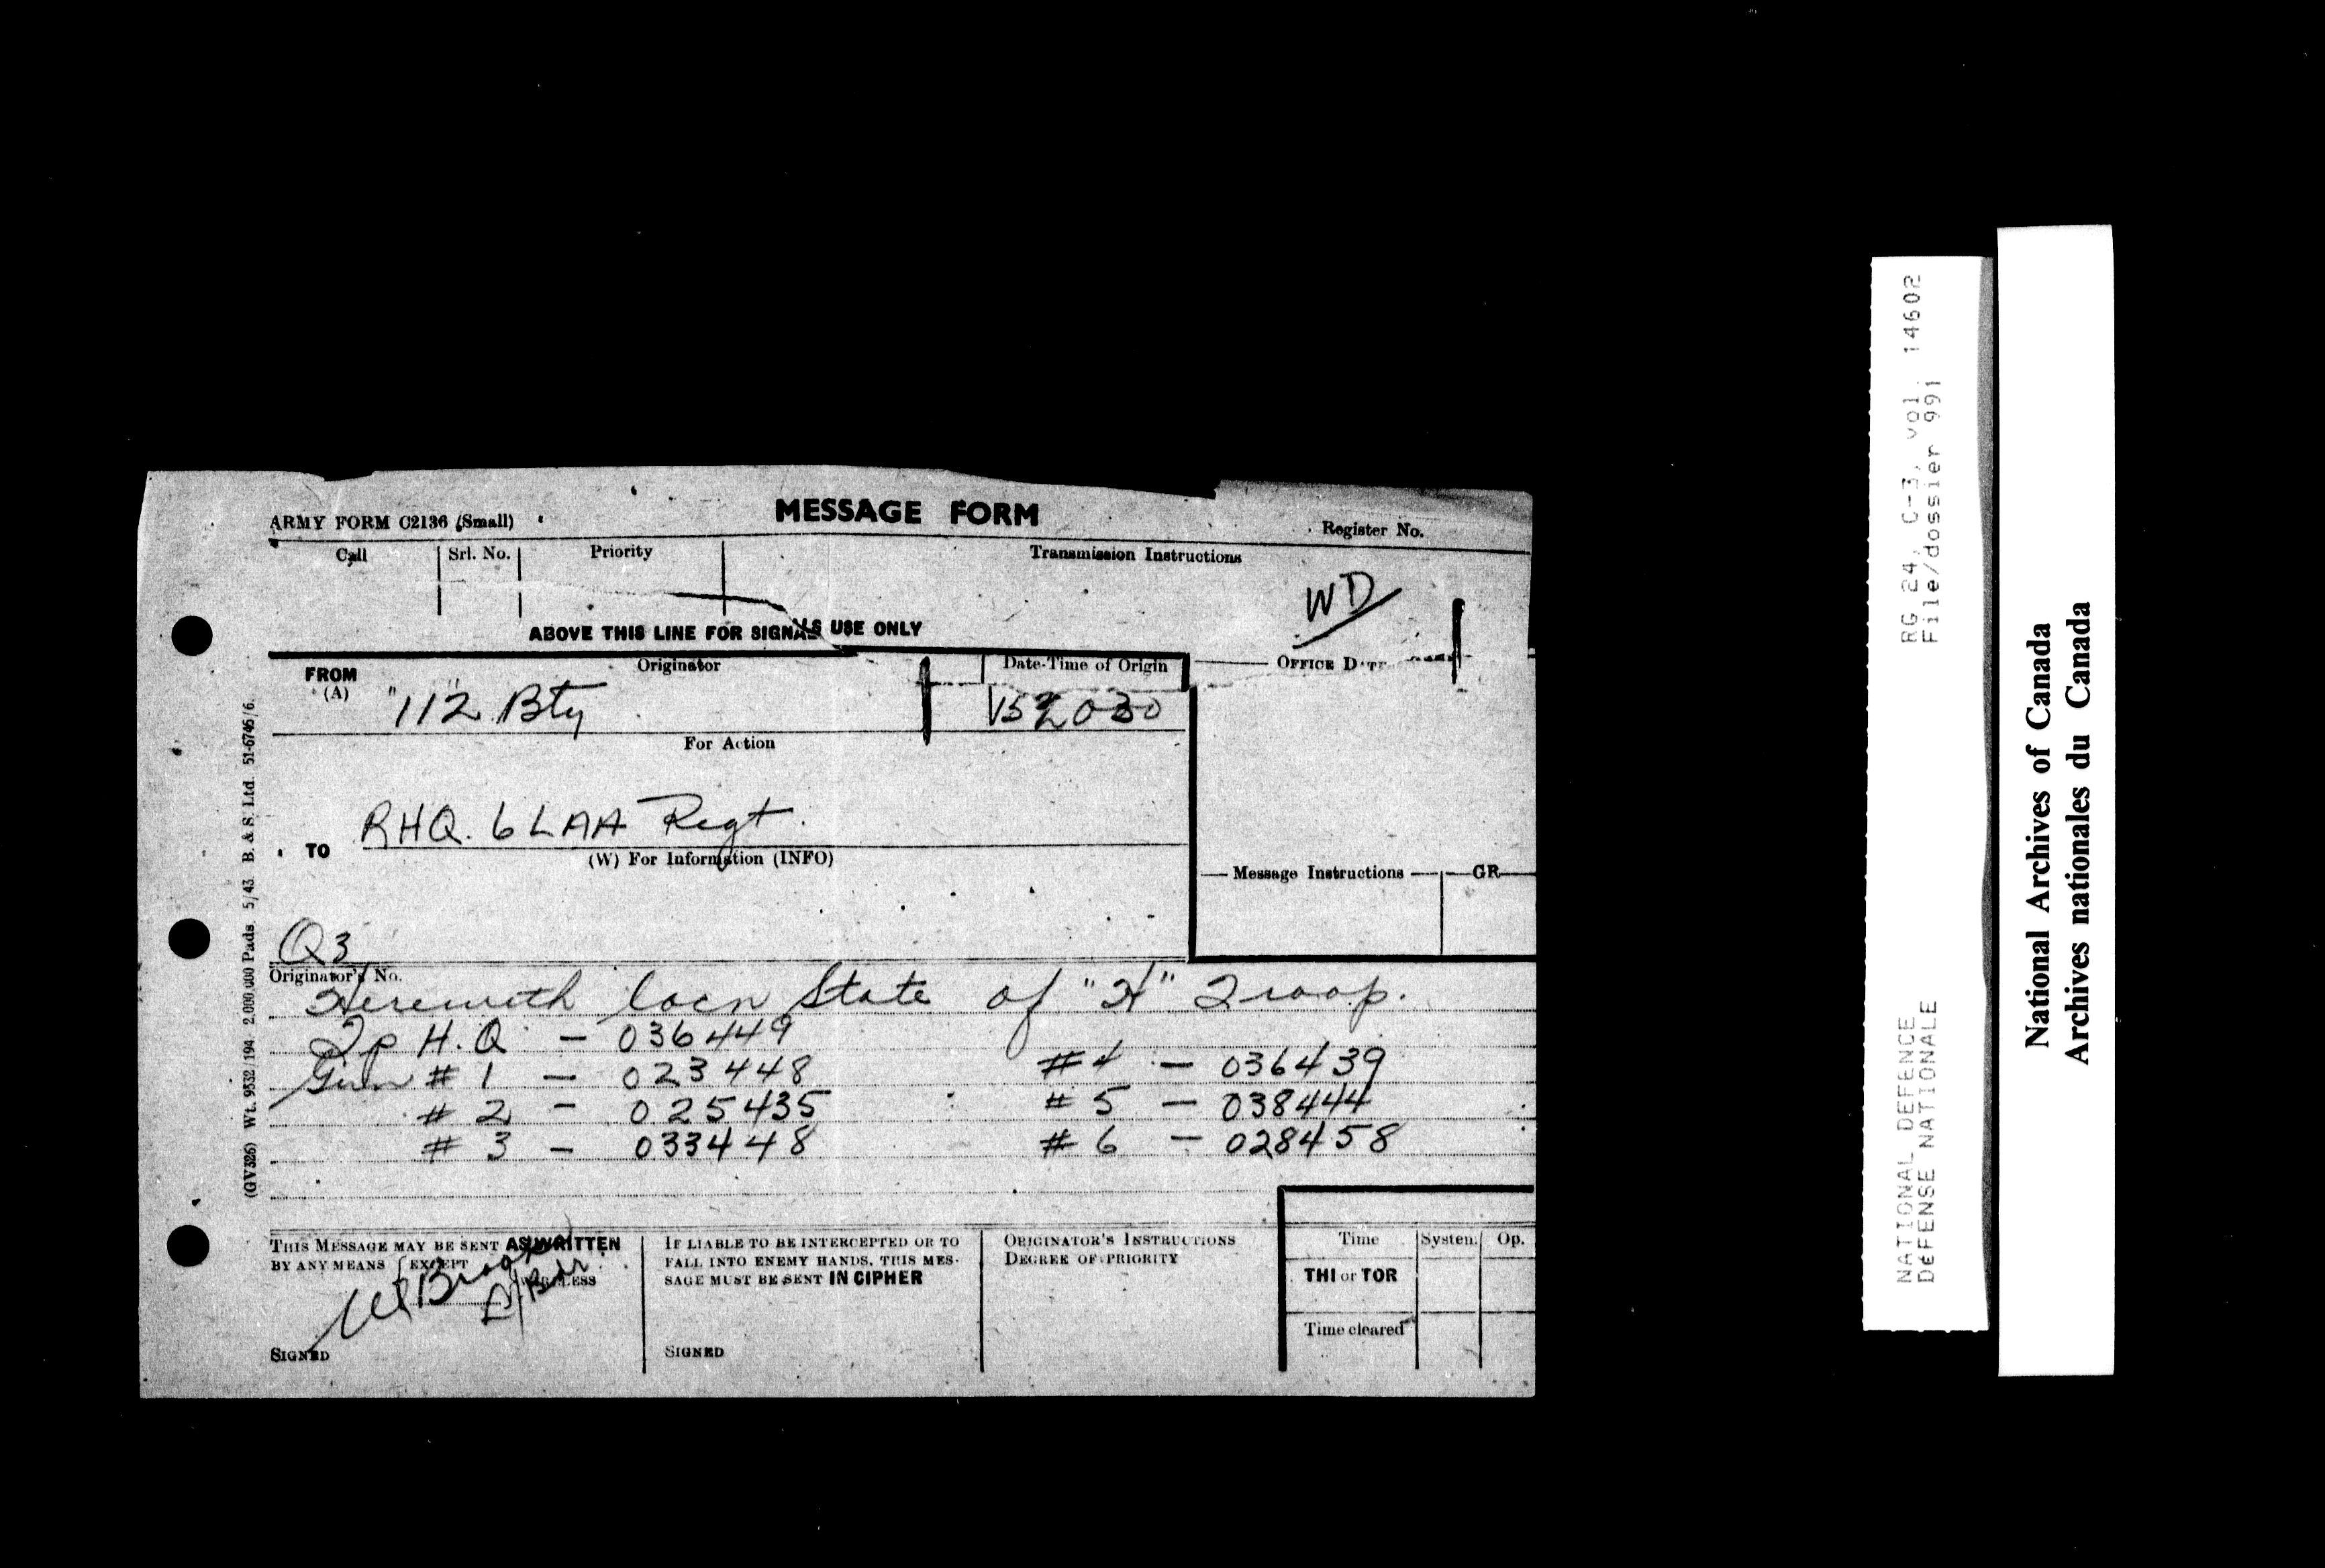 ARMY FORM C2136 (Small)
MESSAGE FORM
Register No.
Call
Srl. No.
Priority
Transmission Instructions
WD
ABOVE THIS LINE FOR SIGNALS USE ONLY
FROM
(A)
Originator
Date-Time of Origin
OFFICE DATE
"112" Bty
152030
For Action
RHQ. 6 LAA Regt.
TO
(W) For Information (INFO)
Message Instructions
GR
Q3
Originator's No.
Herewith locn State of "H" Troop.
Tp H.Q. - 036449
Gun # 1 - 023448
# 4 - 036439
# 2 - 025435
# 5 - 038444
# 3 - 033448
# 6 - 028458
THIS MESSAGE MAY BE SENT AS WRITTEN
BY ANY MEANS
EXCEPT
WIRELESS
L/Bdr.
SIGNED
IF LIABLE TO BE INTERCEPTED OR TO
FALL INTO ENEMY HANDS, THIS MES-
SAGE MUST BE SENT IN CIPHER
SIGNED
ORIGINATOR'S INSTRUCTIONS
DEGREE OF PRIORITY
Time
System
Op.
THI or TOR
Time cleared
(GV326) Wt. 9532/194 2,000,000 Pads. 5/43 B. & S. Ltd. 51-6745/6.
NATIONAL DEFENCE
DEFENSE NATIONALE
RG 24, C-3, vol. 14602
File/dossier 991
National Archives of Canada
Archives nationales du Canada